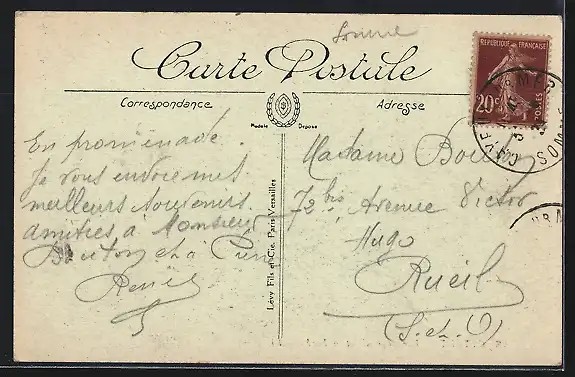 Somme
Carte Postale
Correspondance
Adresse
Modèle Déposé
REPUBLIQUE FRANÇAISE
20c
POSTES
En promenade.
Je vous envoie mes
meilleurs souvenirs
amitiés à Monsieur
et à
Renée
Lévy Fils et Cie, Paris-Versailles
Madame
72 bis, Avenue Victor
Hugo
Rueil
(S. et O)